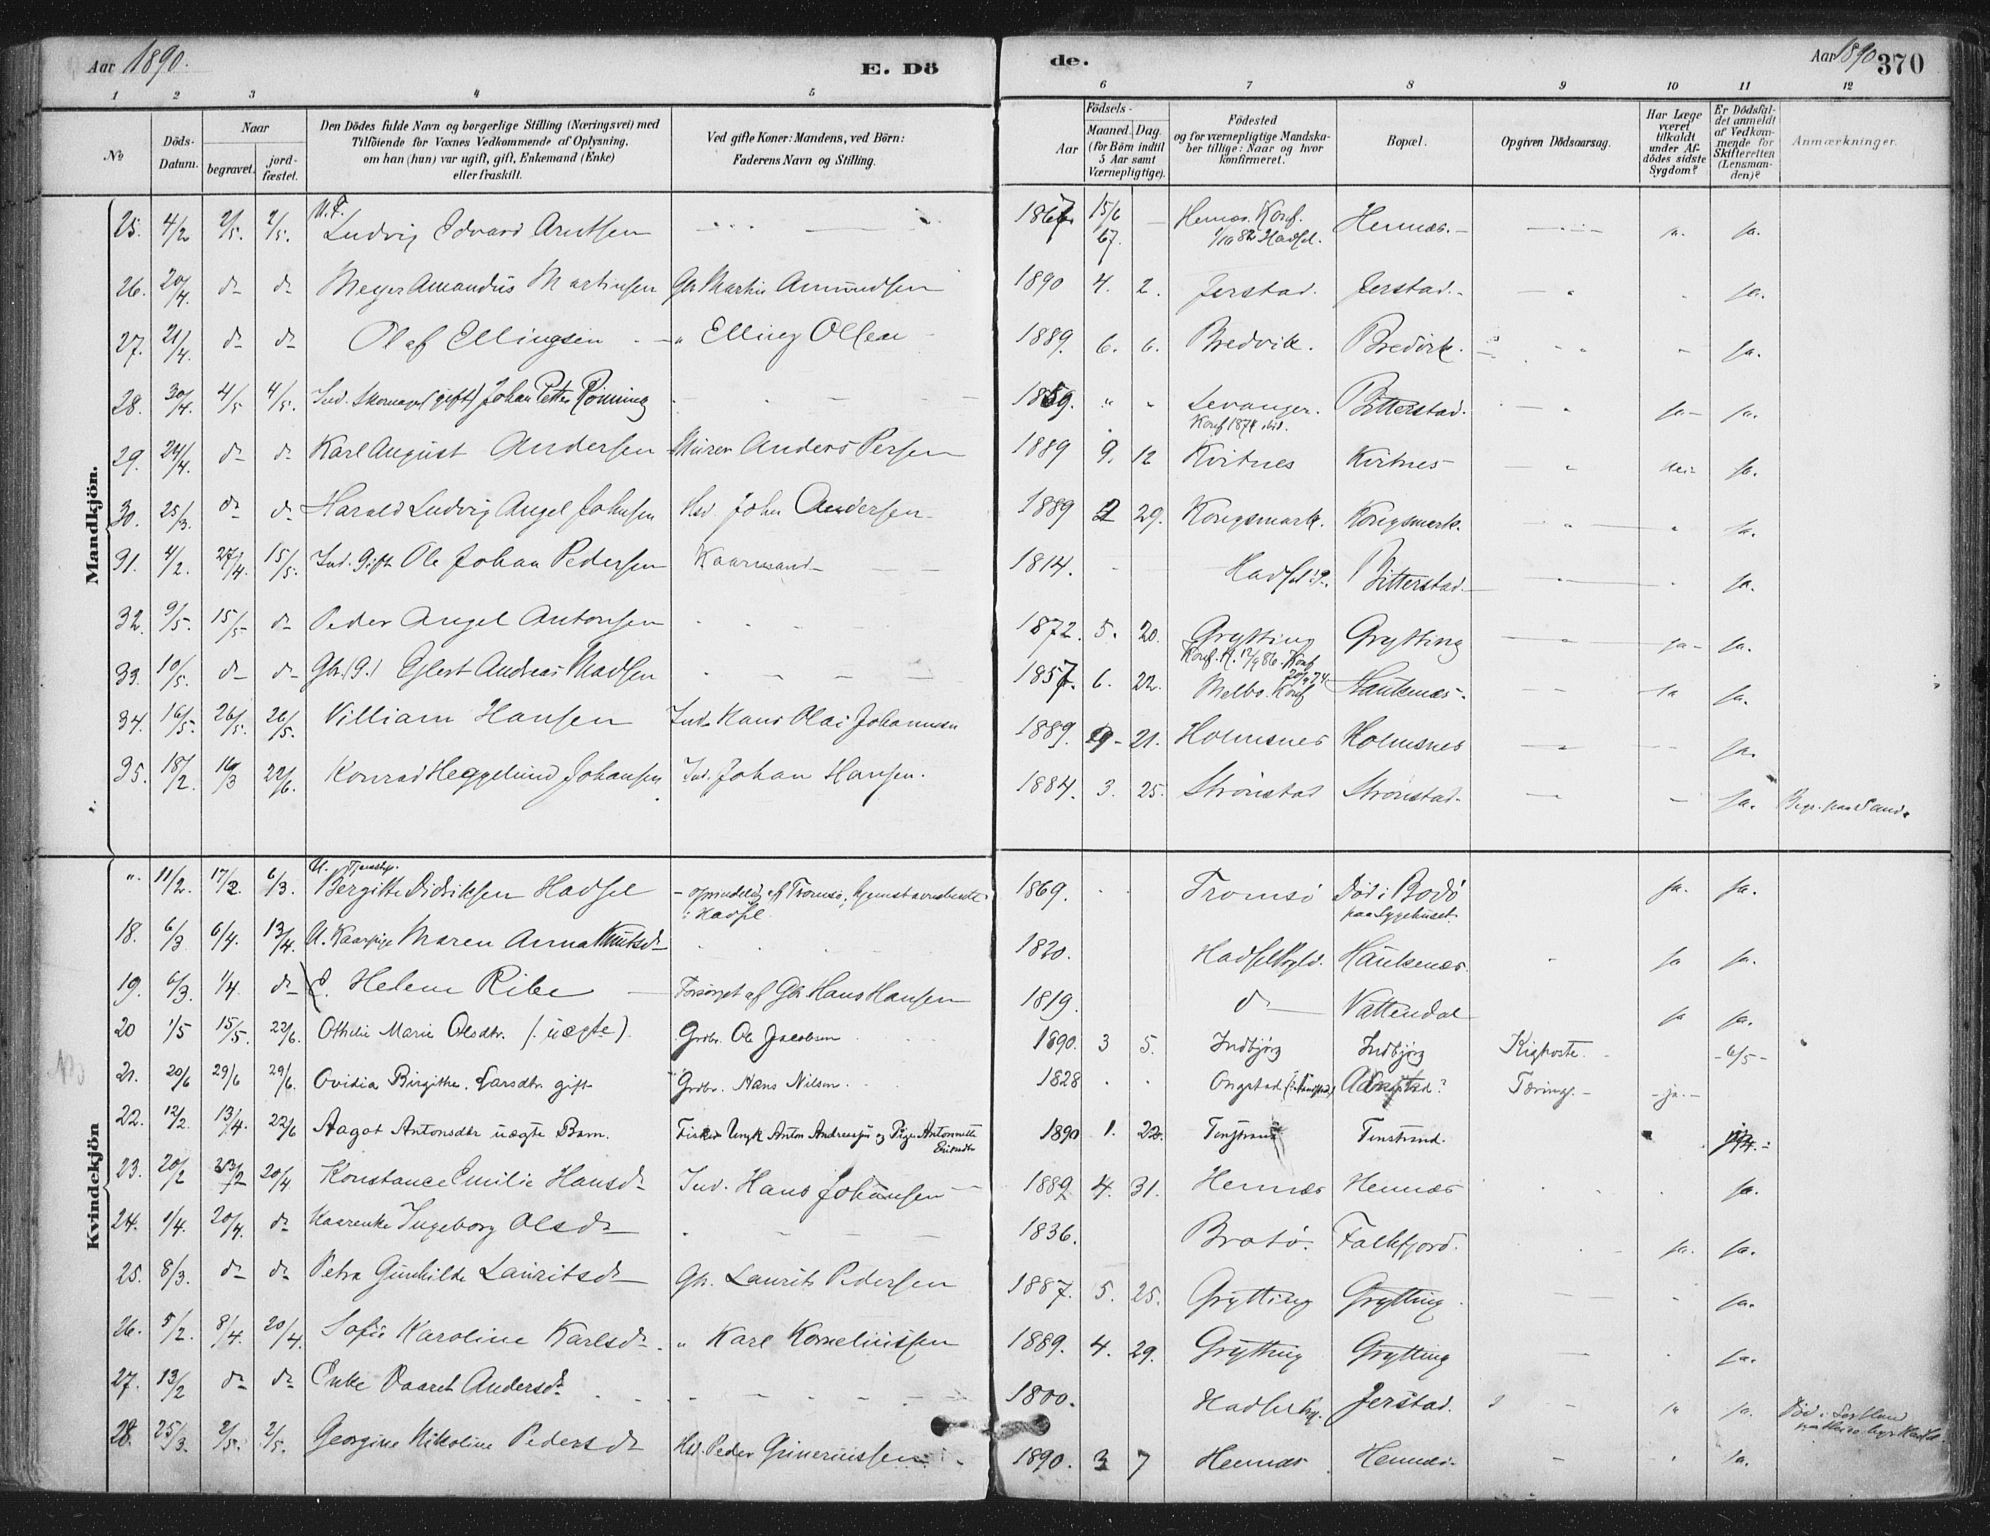 Aar 1890.
E. Dö
de.
Aar 1890
370
1 2 3 4 5 6 7 8 9 10 11 12
No
Döds-Datum.
Naar
begravet.
jord-fæstet.
Den Dödes fulde Navn og borgerlige Stilling (Næringsvei) med
Tilföiende for Voxnes Vedkommende af Oplysning,
om han (hun) var ugift, gift, Enkemand (Enke)
eller fraskilt.
Ved gifte Koner: Mandens, ved Börn:
Faderens Navn og Stilling.
Aar
Födsels-
Maaned. Dag.
(for Börn indtil
5 Aar samt
Værnepligtige).
Födested
og for værnepligtige Mandska-
ber tillige: Naar og hvor
konfirmeret.
Bopæl.
Opgiven Dödsaarsag.
Har Læge
været
tilkaldt
under Af-
dödes sidste
Sygdom?
Er Dödsfal-
det anmeldt
af Vedkom-
mende for
Skifteretten
(Lensman-
den)?
Anmærkninger.
Mandkjön.
25. 4/2 2/5. 2/5. U.F. Ludvig Edvard Arntsen 1867 15/6 67. Hennæs. Konf. 1/10 82 Hadsel. Hennæs. ja. ja.
26. 20/4. d d Meyer Amandus Martinsen Gbr Martin Amundsen 1890 4. 2. Jerstad. Jerstad. ja.
27. 21/4. d d Olaf Ellingsen " Elling Olsen 1889. 6. 6. Bredvik. Bredvik. ja.
28. 30/4. 4/5 4/5. Ind. Skomager (gift) Johan Petter Rönning 1859. " " Levanger. Konf 1874 ibid. Bitterstad. ja ja.
29. 24/4. d d Karl August Andersen Murer Anders Persen 1889 9. 12 Kvitnes Kvitnes nei ja.
30. 25/3. d d Harald Ludvig Angel Johnsen Hsd. John Andersen 1889 2 29. Kongsmark. Kongsmark. ja.
31. 4/2. 27/4. 15/5. Ind. Gift Ole Johan Pedersen Kaarnesand 1814. Bitterstad ja.
32. 9/5. 15/5 d Peder Angel Antonsen 1872. 5. 20. Grytting Konf. H. 12/9 86. Grytting ja ja.
33. 10/5. d d Gbr. (G.) Eglert Andreas Madsen 1857. 6. 22. Melbo. Konf Haukenæs. ja ja.
34. 16/5. 26/5. 26/5. Villiam Hansen Ind. Hans Olai Johannesen 1889. 9 21. Holmsnes Holmsnes ja.
35. 18/2. 16/3 22/6. Konrad Heggelund Johansen Ind. Johan Hansen. 1884. 3. 25. Strönstad Strönstad. ja. Begr. paa Sand.
Kvindekjön
" 11/2. 17/2. 6/3. U. Tjenstp. Bergitte Didriksen Hadsel oprindelig af Tromsö, hjemstavnsberettet i Hadsel. 1869. Tromsö Död i Bodö paa Sygehuset. ja. ja.
18. 6/3 6/4. 13/4. U. Kaarpige Maren Anna Knutsd 1820. Hadsel Haukenæs. ja ja.
19. 6/3. 1/4 d E. Helene Ribe Forsörget af Gbr Hans Hansen 1819. d Vattendal ja ja.
20 1/5 15/5. 22/6. Othilie Marie Olsdtr. (uægte). Grdbr. Ole Jacobsen 1890. 3 5. Indbjörg Indbjörg Kighoste. 6/5
21. 20/6 29/6 29/6. Ovidia Birgithe Larsdtr. gift Grdbr. Hans Nilsen. 1828 Ongstad Tæring. ja.
22. 12/2. 13/4. 22/6 Aagot Antonsdtr uægte Barn. Fisker Ungk Anton Andreassen og Pige Antonette 1890 1. 22. Tenstrand Tenstrand.
23. 20/2 23/2 20/4 Konstance Emilie Hansd Ind. Hans Johansen 1889 4. 31. Hennæs Hennæs ja.
24. 1/4. 20/4. d Kaarenke Ingeborg Olsd 1836. Bratö. Falkfjord. ja. ja.
25. 8/3. d d Petra Gunhilde Lauritsd Gbr. Laurits Pedersen 1887. 5. 25. Grytting Grytting. ja.
26. 5/2. 8/4. 20/4. Sofie Karoline Karlsd. " Karl Korneliussen 1889. 4. 29. Grytting Grytting ja.
27. 13/2 d d Enke Andersd 1800. Jerstad. ja.
28. 25/3. 2/5. 2/5. Georgine Nikoline Pedersd Hsd. Peder Grineriussen 1890. 3 7 Hennæs Hennæs. ja.